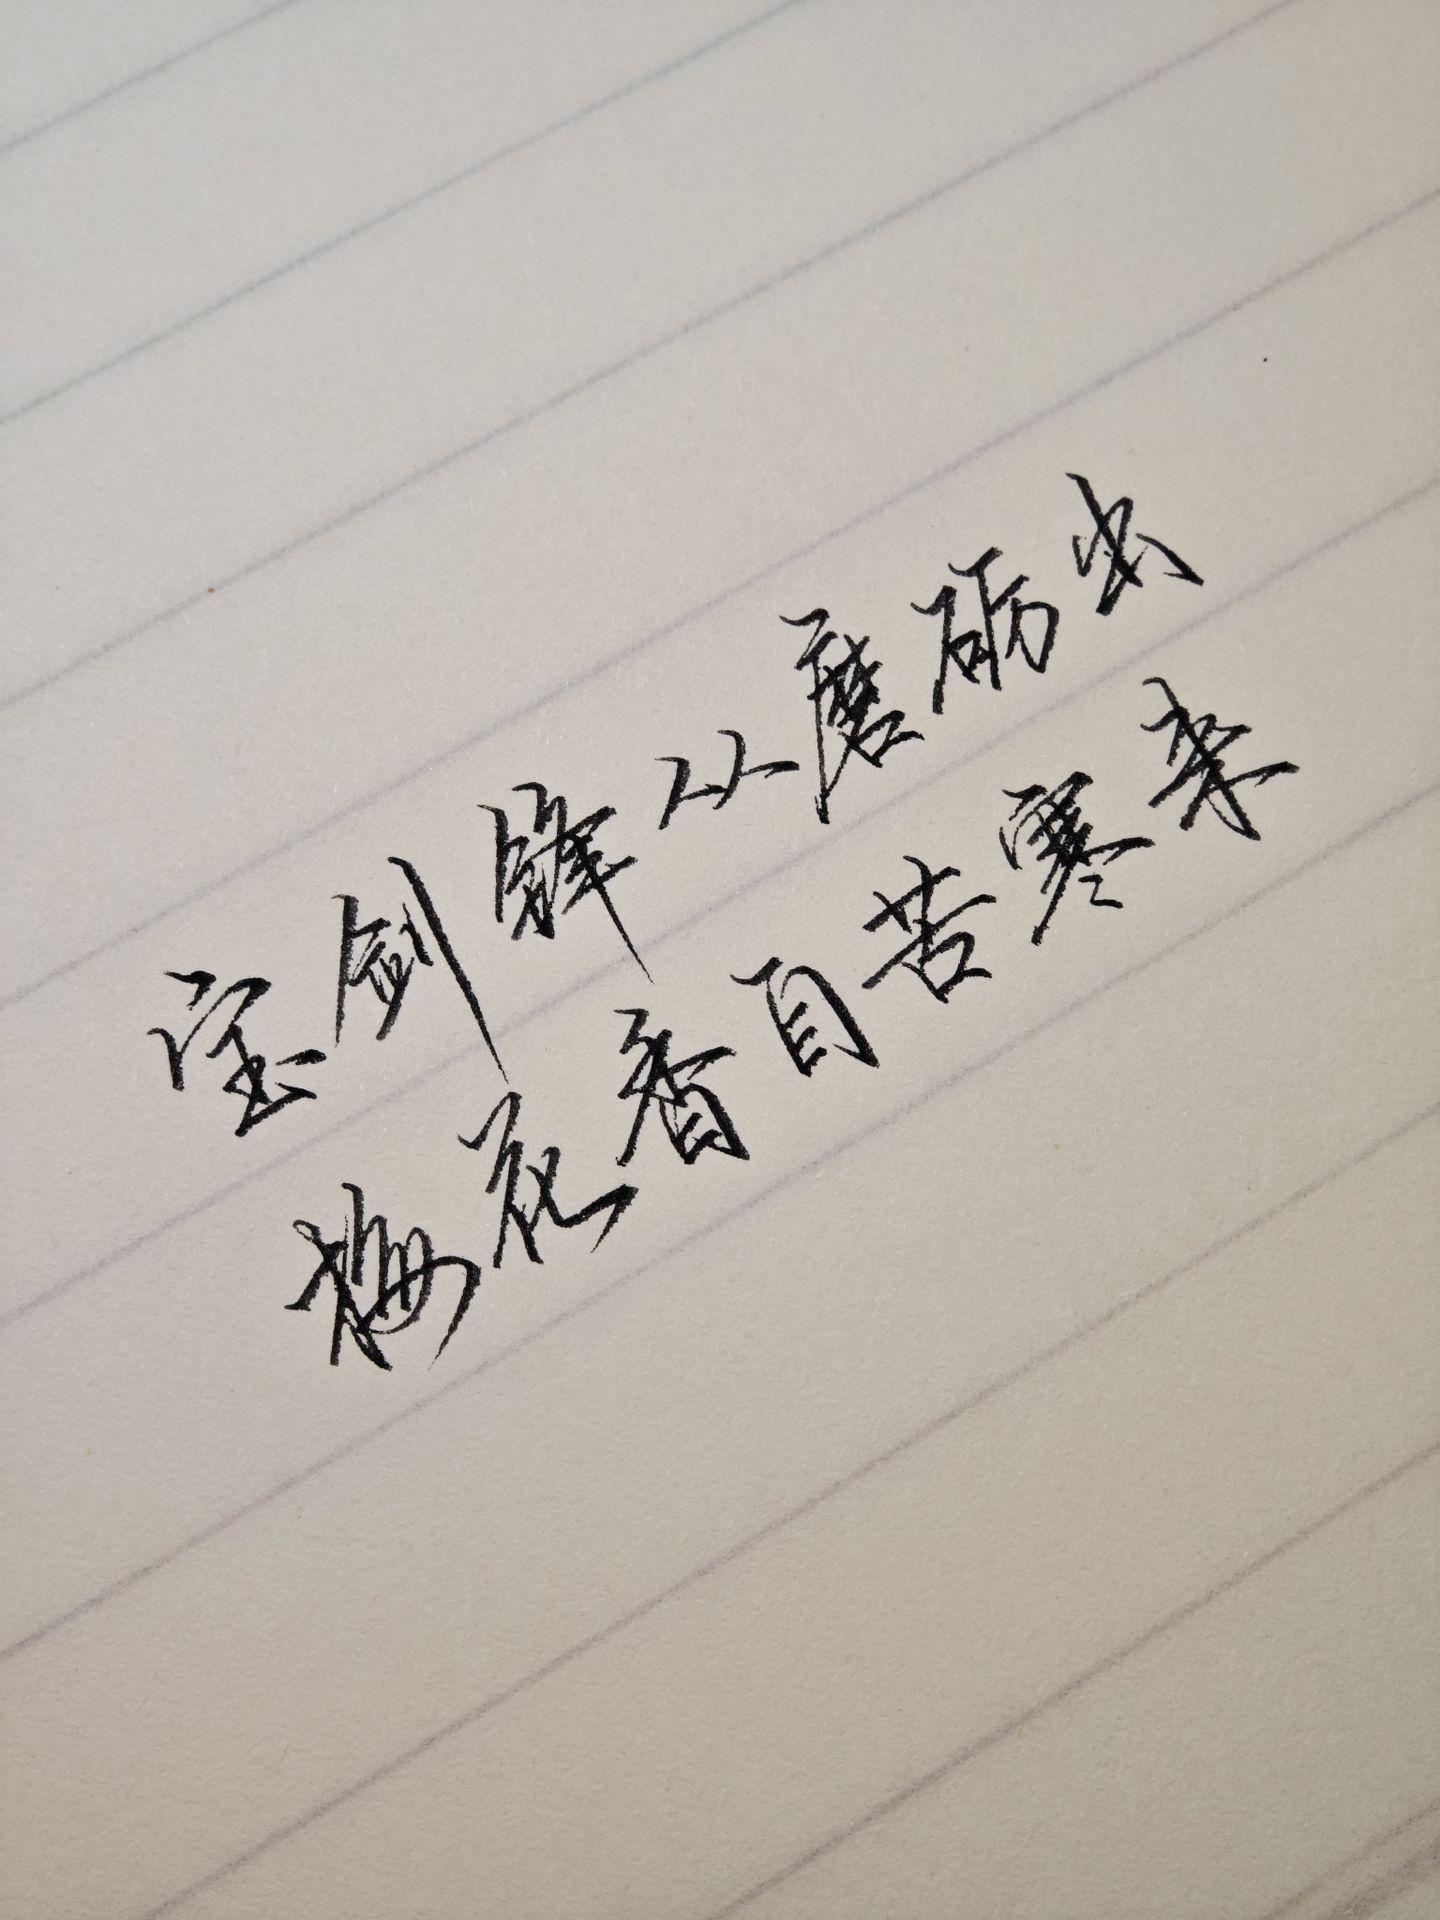 宝剑锋从磨砺出
梅花香自苦寒来